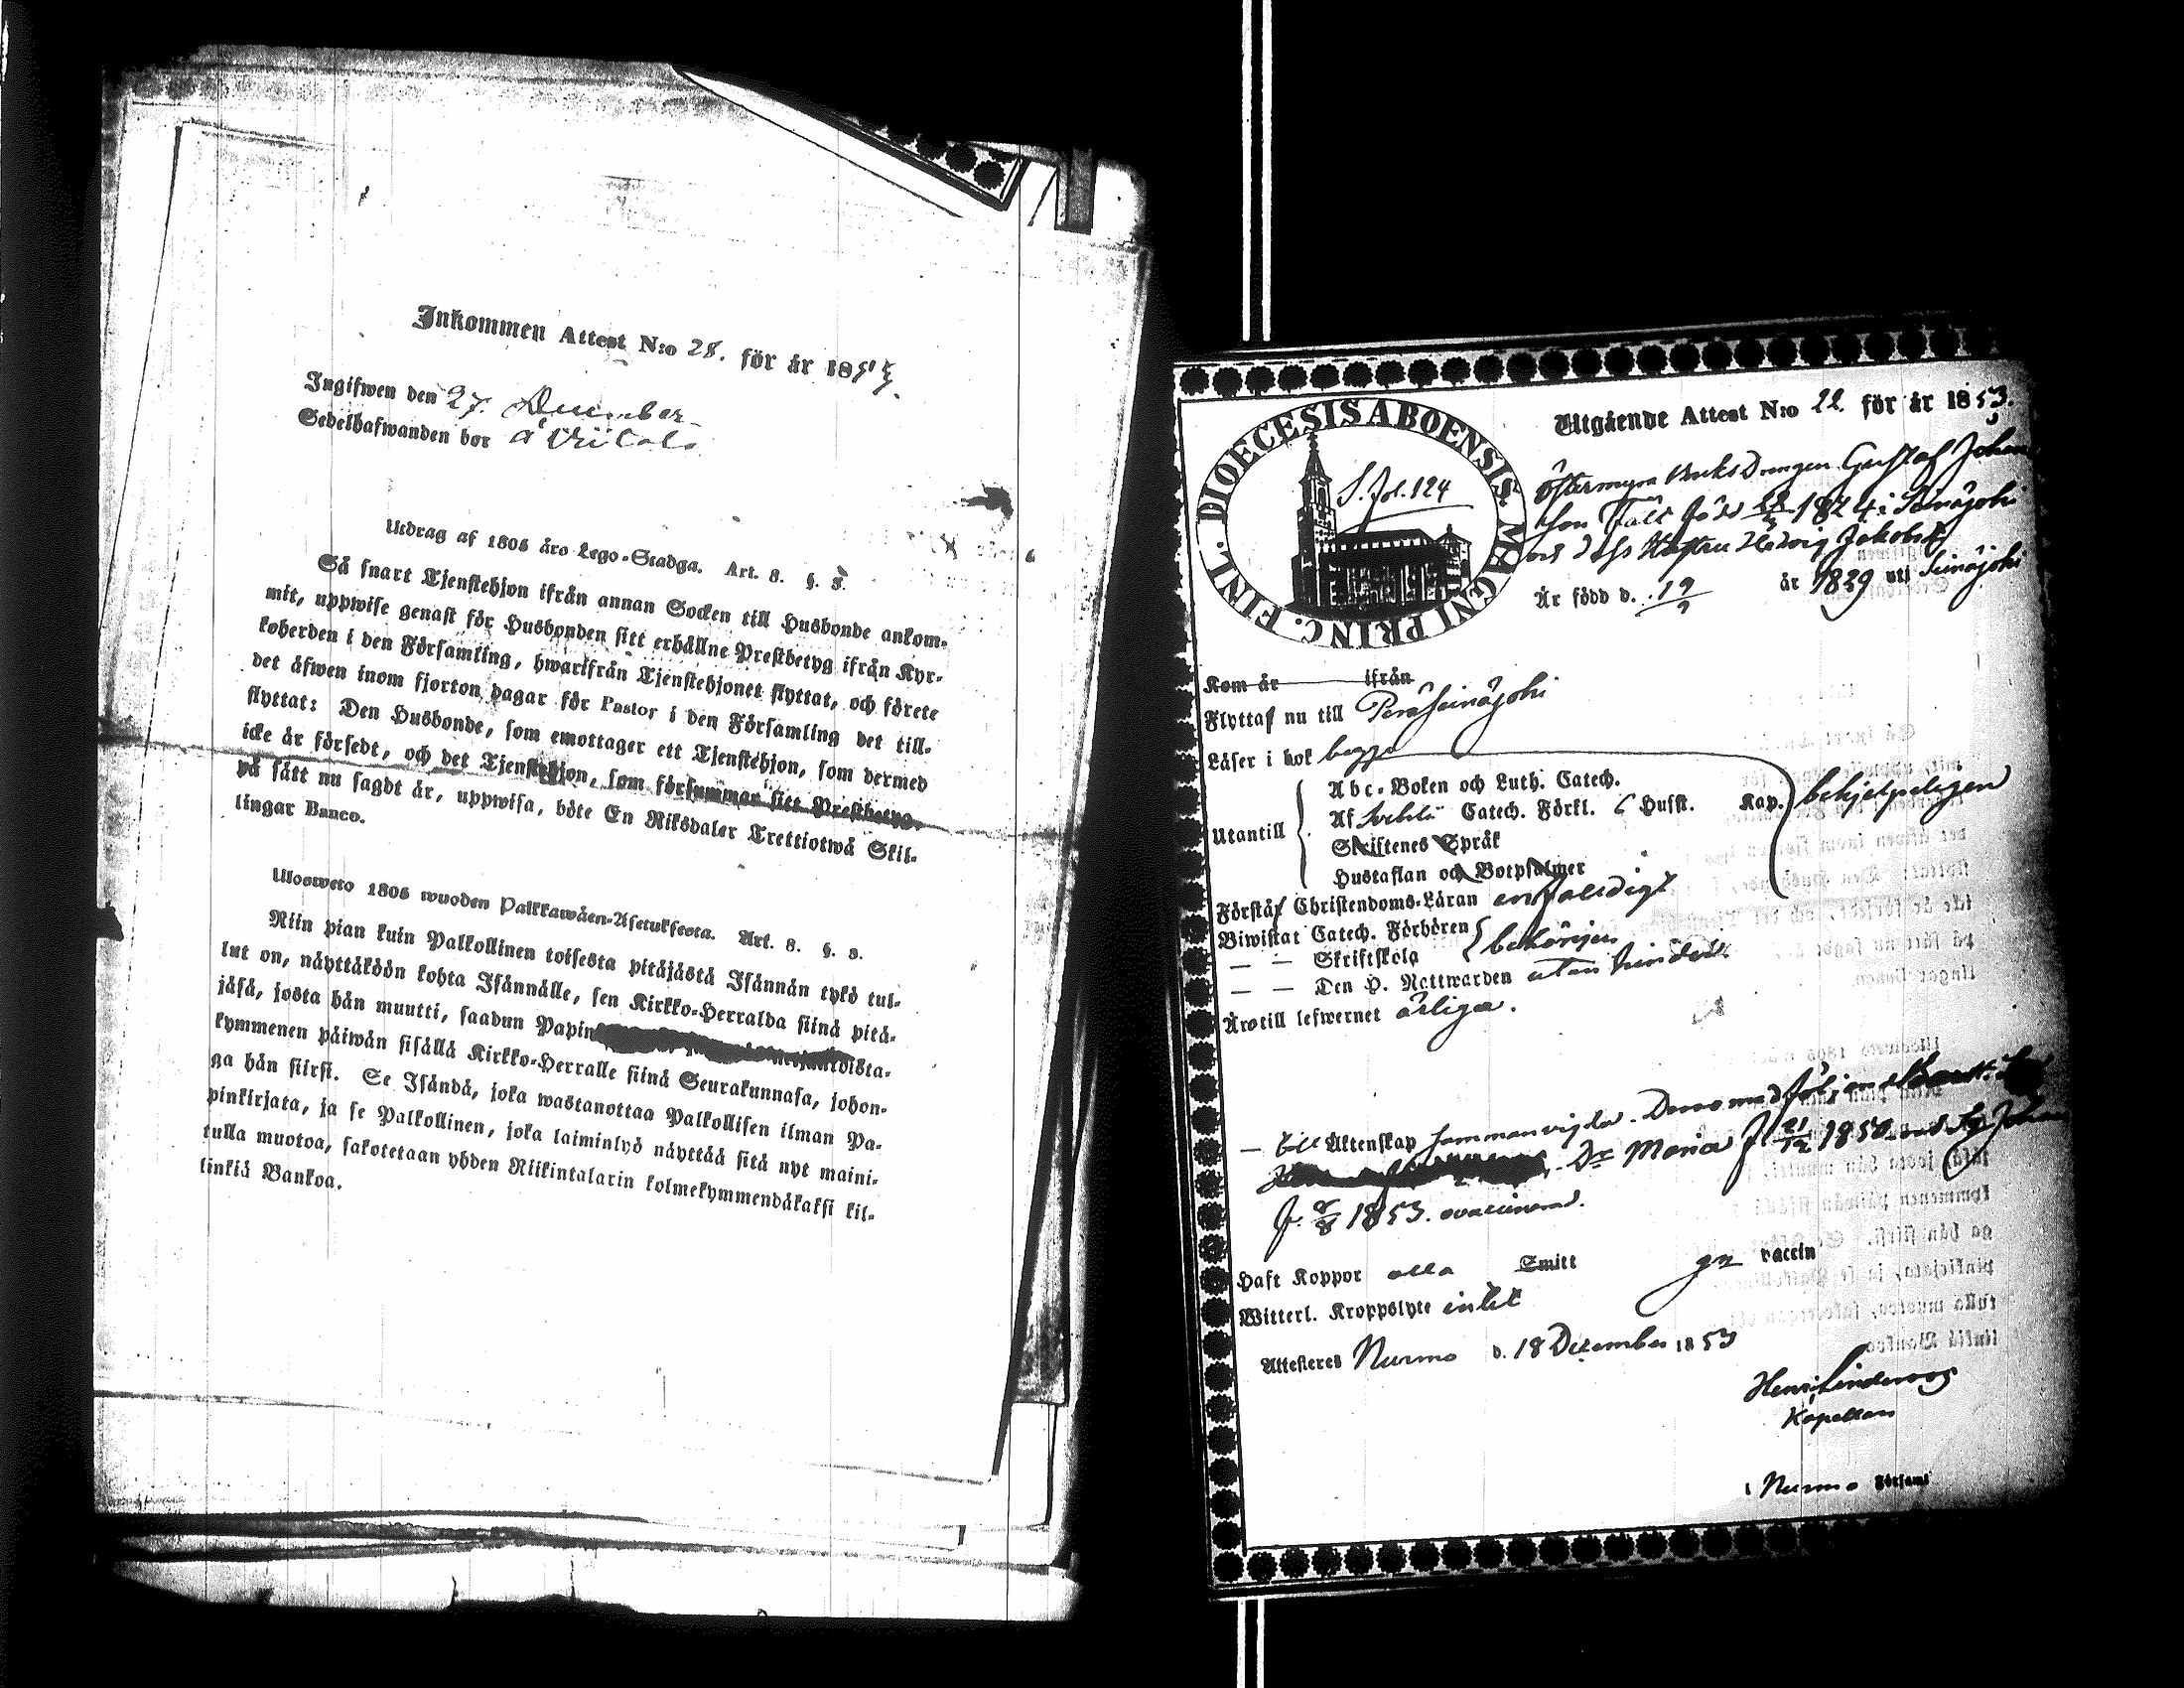 Inkommen Attest N:o 28. för år 1853.
Ingifwen den 27. December
Sedelhafwanden bor å Viitala
Utdrag af 1805 års Lego-Stadga. Art. 8. §. 3.
Så snart Tjenstehjon ifrån annan Socken till Husbonde ankom-
mit, uppwise genast för Husbonden sitt erhållne Prestbetyg ifrån Kyr-
koherden i den Församling, hwarifrån Tjenstehjonet flyttat, och förete
det äfwen inom fjorton dagar för Pastor i den Församling det till-
flyttat: Den Husbonde, som emottager ett Tjenstehjon, som dermed
icke är försedt, och det Tjenstehjon, som försummar sitt Prestbetyg,
på sätt nu sagdt är, uppwisa, böte En Riksdaler Trettiotwå Skil-
lingar Banco.
Ulosweto 1805 wuoden Palkkawäen-Asetuksesta. Art. 8. §. 3.
Niin pian kuin Palkollinen toisesta pitäjästä Isännän tykö tul-
lut on, näyttäköön kohta Isännälle, sen Kirkko-Herralda siinä pitä-
jäsä, josta hän muutti, saadun Papin
kymmenen päiwän sisällä Kirkko-Herralle siinä Seurakunnasa, johon-
ga hän siirsi. Se Isändä, joka wastanottaa Palkollisen ilman Pa-
pinkirjata, ja se Palkollinen, joka laiminlyö näyttää sitä nyt maini-
tulla muotoa, sakotetaan yhden Riikintalarin kolmekymmendäkaksi kil-
linkiä Bankoa.
DIOECESIS ABOENSIS MAGNI PRINC. FINL.
S. fol. 124
Utgående Attest N:o 22. för år 1853.
Östermyra Bruks Drengen Gustaf Johan
son Fält född 1824 i Seinäjoki
och dess Hustru Hedvig Jakobsd
Är född d. 19/9 år 1829 uti Seinäjoki
Kom år ifrån
Flyttaf nu till Peräseinäjoki
Läser i bok begge
Abc-Boken och Luth. Catech.
Utantill Af Svebilii Catech. Förkl. Hufst. Kap. behjelpeligen
Skriftenes Språk
Hustaflan och Botpsalmer
Förstår Christendoms-Läran enfaldigt
Biwistat Catech. Förhören behörigen
— — Skriftskola
— — Den H. Nattwarden utan hinder
Äro till lefwernet ärliga.
— till Äktenskap sammanvigda. Dem medfölja
Dr Maria f. 21/12 1850
f. 8/8 1853. ovaccinerad.
Haft Koppor alla Smitt gn vaccin
Witterl. Kroppslyte intet
Attesteras Nurmo d. 18 December 1853
Kapellan
i Nurmo Församl